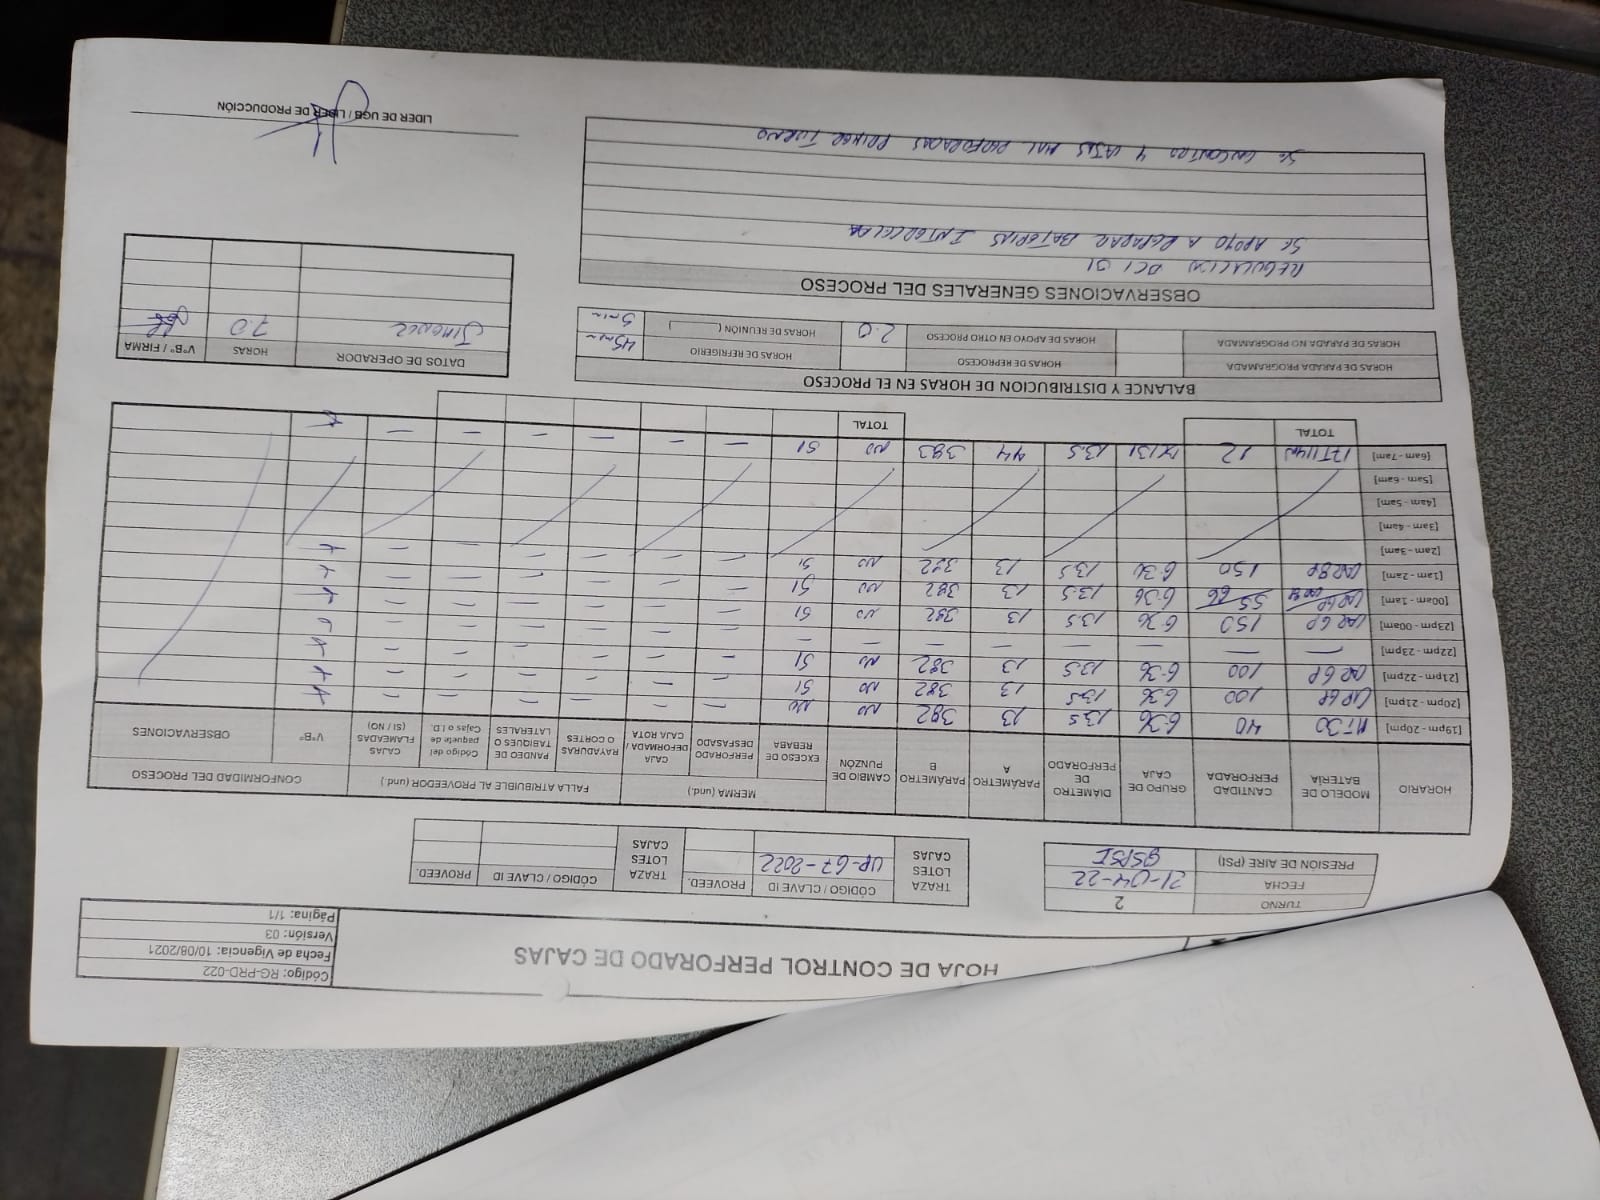 HOJA DE CONTROL PERFORADO DE CAJAS
Código: RG-PRD-022
Fecha de Vigencia: 10/08/2021
Versión: 03
Página: 1/1
TURNO 2
FECHA 21-04-22
PRESIÓN DE AIRE (PSI)
TRAZA LOTES CAJAS CÓDIGO / CLAVE ID PROVEED.
UP-67-2022
TRAZA LOTES CAJAS CÓDIGO / CLAVE ID PROVEED.
HORARIO MODELO DE BATERÍA CANTIDAD PERFORADA GRUPO DE CAJA DIÁMETRO DE PERFORADO PARÁMETRO A PARÁMETRO B CAMBIO DE PUNZÓN MERMA (und.) FALLA ATRIBUIBLE AL PROVEEDOR (und.) CONFORMIDAD DEL PROCESO
EXCESO DE REBABA PERFORADO DESFASADO CAJA DEFORMADA / CAJA ROTA RAYADURAS O CORTES PANDEO DE TABIQUES O LATERALES Código del paquete de Cajas o I.D. CAJAS FLAMEADAS (SI / NO) V°B° OBSERVACIONES
[19pm - 20pm] MT30 40 636 13.5 13 382 NO NO — — — — — —
[20pm - 21pm] 100 636 13.5 13 382 NO SI — — — — — —
[21pm - 22pm] CAR6P 100 636 13.5 13 382 NO SI — — — — — —
[22pm - 23pm] — — — — — — — — — — — — — —
[23pm - 00am] CAR6P 150 636 13.5 13 382 NO SI — — — — — —
[00am - 1am] CAR6P / CAR8P 55 / 66 636 13.5 13 382 NO SI — — — — — —
[1am - 2am] CAR8P 150 636 13.5 13 382 NO SI — — — — — —
[2am - 3am]
[3am - 4am]
[4am - 5am]
[5am - 6am]
[6am - 7am] 12 13.5 44 383 NO SI — — — — — —
TOTAL TOTAL
BALANCE Y DISTRIBUCION DE HORAS EN EL PROCESO
HORAS DE PARADA PROGRAMADA HORAS DE REPROCESO HORAS DE REFRIGERIO 45min
HORAS DE PARADA NO PROGRAMADA HORAS DE APOYO EN OTRO PROCESO 2.0 HORAS DE REUNIÓN (________) 5min
DATOS DE OPERADOR HORAS V°B° / FIRMA
JIMENEZ 7.0
OBSERVACIONES GENERALES DEL PROCESO
REGULACION
SE APOYO A REPARAR BATERIAS INTERCELDA
SE ENCONTRO 4 CAJAS MAL PERFORADAS PRIMER TURNO
LIDER DE UGB / LIDER DE PRODUCCIÓN